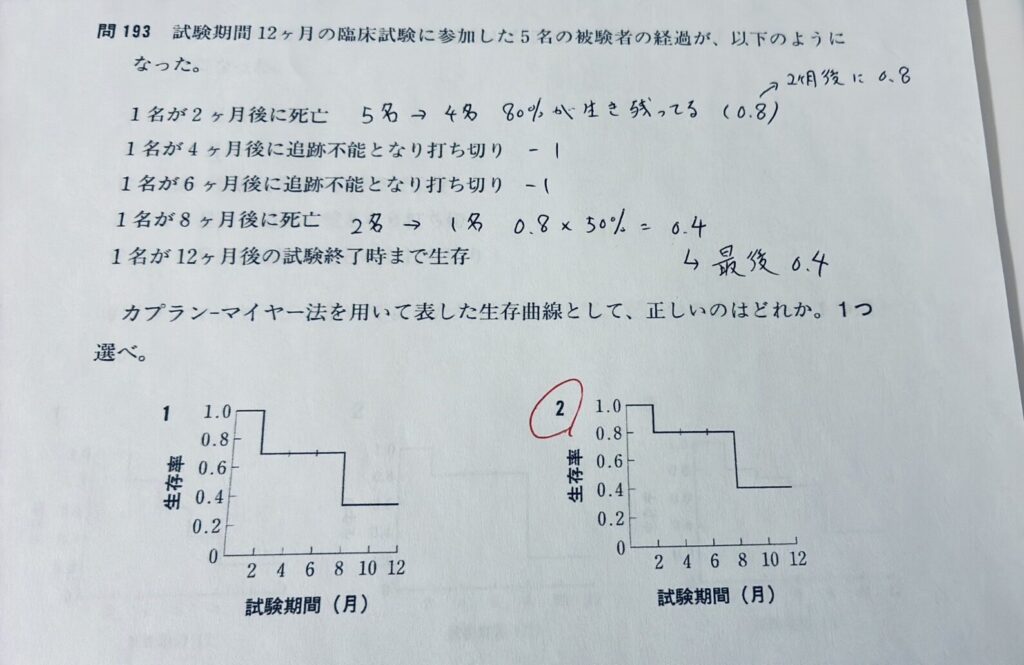 問193 試験期間12ヶ月の臨床試験に参加した5名の被験者の経過が、以下のように
なった。
2ヶ月後に 0.8
1名が2ヶ月後に死亡 5名 → 4名 80%が生き残ってる (0.8)
1名が4ヶ月後に追跡不能となり打ち切り -1
1名が6ヶ月後に追跡不能となり打ち切り -1
1名が8ヶ月後に死亡 2名 → 1名 0.8 × 50% = 0.4
1名が12ヶ月後の試験終了時まで生存
↳ 最後 0.4
カプラン-マイヤー法を用いて表した生存曲線として、正しいのはどれか。1つ
選べ。
1
生存率
1.0
0.8
0.6
0.4
0.2
0
2 4 6 8 10 12
試験期間(月)
2
生存率
1.0
0.8
0.6
0.4
0.2
0
2 4 6 8 10 12
試験期間(月)